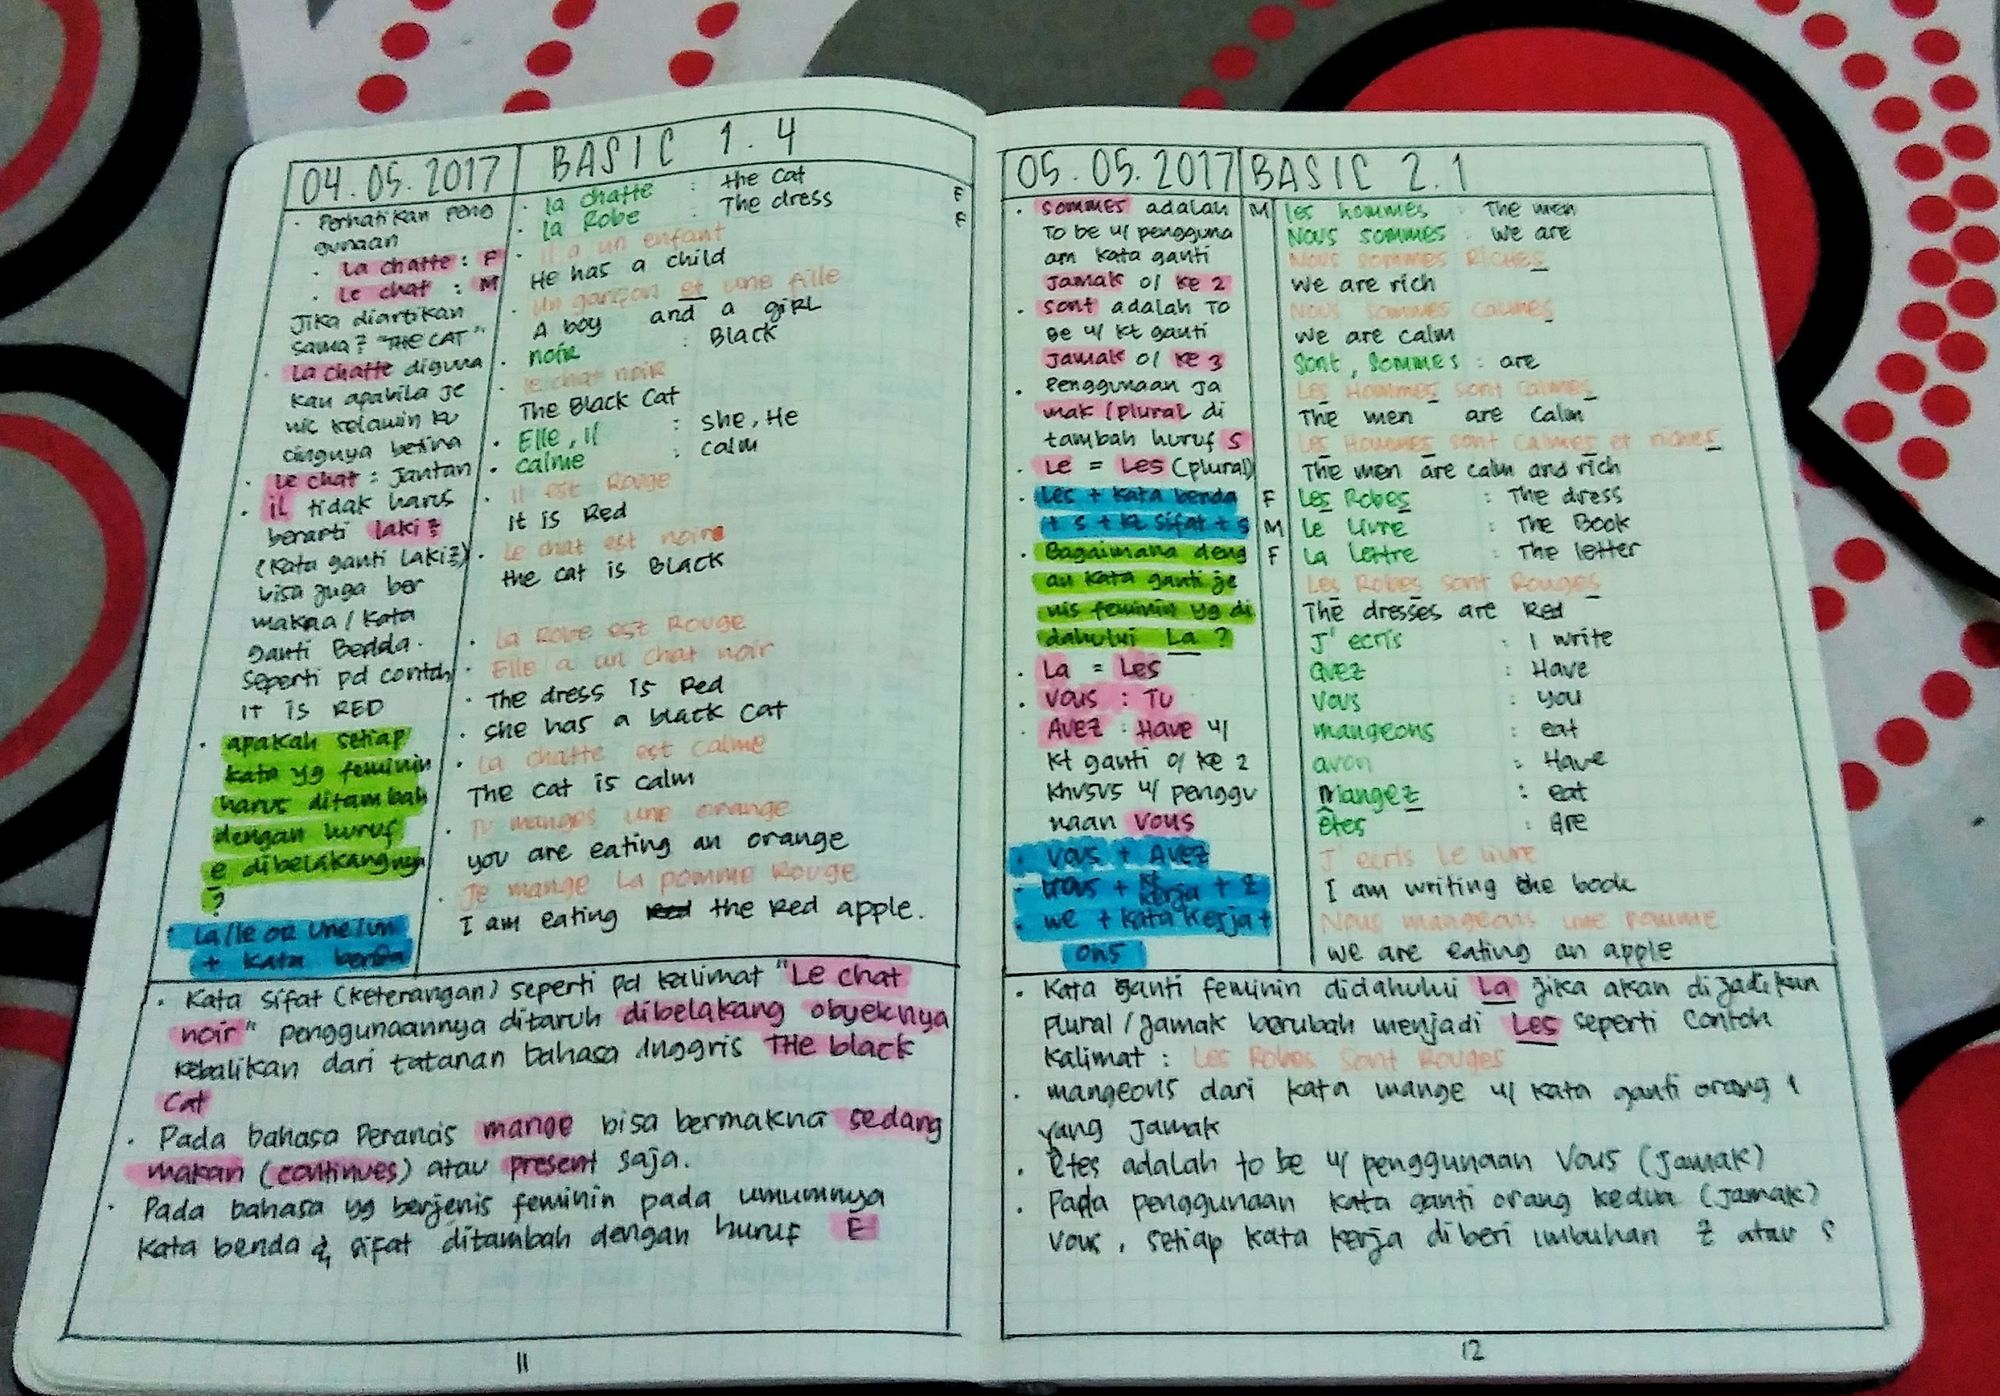 04.05.2017
BASIC 1.4
· Perhatikan peng
gunaan
· La chatte : F
· Le chat : M
Jika diartikan
sama? "THE CAT"
· La chatte diguna
kan apabila je
nis kelamin ku
cingnya betina
· Le chat : Jantan
· il tidak harus
berarti laki2
(kata ganti laki2)
bisa juga ber
makna / kata
ganti Bedda.
seperti pd contoh
IT IS RED
· apakah setiap
kata yg feminin
harus ditambah
dengan huruf
e dibelakangnya
?
· La/le or Une/un
+ kata benda
· la chatte : the cat F
· La Robe : The dress F
· il a un enfant
He has a child
· Un garçon et une fille
A boy and a girl
· noir : Black
· le chat noir
The Black Cat
· Elle, il : she, He
· calme : calm
· il est Rouge
it is Red
· Le chat est noir
the cat is Black
· La Robe est Rouge
· Elle a un chat noir
· The dress is Red
· she has a black cat
· La chatte est calme
The cat is calm
· Tu manges une orange
you are eating an orange
· Je mange La pomme Rouge
I am eating the Red apple.
· Kata sifat (keterangan) seperti pd kalimat "Le chat
noir" penggunaannya ditaruh dibelakang obyeknya
kebalikan dari tatanan bahasa Inggris THe black
Cat
· Pada bahasa Perancis mange bisa bermakna sedang
makan (continues) atau present saja.
· Pada bahasa yg berjenis feminin pada umumnya
kata benda & sifat ditambah dengan huruf E
11
05.05.2017
BASIC 2.1
· Sommes adalah
To be u/ pengguna
an kata ganti
Jamak o/ ke 2
· Sont adalah To
Be u/ kt ganti
Jamak o/ ke 3
· Penggunaan ja
mak / plural di
tambah huruf S
· Le = Les (plural)
· Les + kata benda
+ s + kt sifat + s
· Bagaimana deng
an kata ganti je
nis feminin yg di
dahului La ?
· La = Les
· Vous : Tu
· Avez : Have u/
kt ganti o/ ke 2
khusus u/ penggu
naan Vous
· Vous + Avez
· Vous + kt kerja + z
· we + kata kerja +
ons
M les hommes : The men
Nous sommes : we are
Nous sommes Riches
We are rich
Nous sommes calmes
we are calm
Sont, Sommes : are
Les Hommes sont calmes
The men are calm
Les Hommes sont calmes et riches
The men are calm and rich
F Les Robes : The dress
M Le Livre : The Book
F La Lettre : The letter
Les Robes sont Rouges
The dresses are Red
J'ecris : I write
avez : Have
Vous : you
mangeons : eat
avon : Have
Mangez : eat
êtes : Are
J'ecris Le livre
I am writing the book
Nous mangeons une pomme
we are eating an apple
· Kata ganti feminin didahului La jika akan dijadikan
plural / jamak berubah menjadi Les seperti contoh
kalimat : Les Robes sont Rouges
· mangeons dari kata mange u/ kata ganti orang 1
yang jamak
· Êtes adalah to be u/ penggunaan Vous (jamak)
· Pada penggunaan kata ganti orang kedua (jamak)
Vous, setiap kata kerja diberi imbuhan z atau s
12